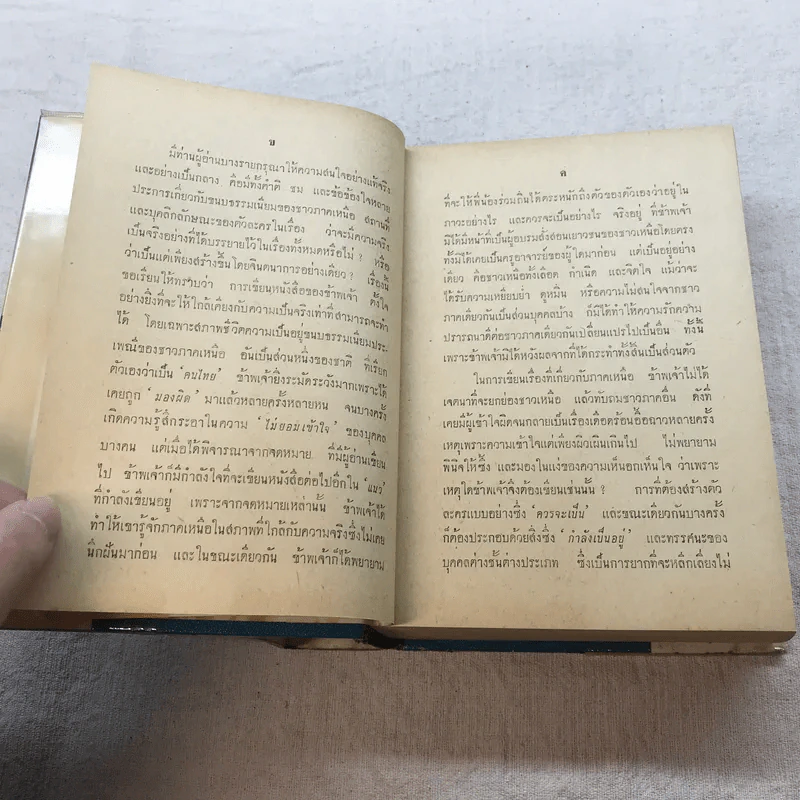 ข
มีท่านผู้อ่านบางรายกรุณาให้ความสนใจอย่างแท้จริง
และอย่างเป็นกลาง คือมีทั้งคำติ ชม และข้อข้องใจหลาย
ประการเกี่ยวกับขนบธรรมเนียมของชาวภาคเหนือ สถานที่
และบุคลิกลักษณะของตัวละครในเรื่อง ว่าจะมีความจริง
เป็นจริงอย่างที่ได้บรรยายไว้ในเรื่องทั้งหมดหรือไม่ ? หรือ
ว่าเป็นแต่เพียงสร้างขึ้นโดยจินตนาการอย่างเดียว ? เรื่องนั้น
ขอเรียนให้ทราบว่า การเขียนหนังสือของข้าพเจ้า ตั้งใจ
อย่างยิ่งที่จะให้ใกล้เคียงกับความเป็นจริงเท่าที่สามารถจะทำ
ได้ โดยเฉพาะสภาพชีวิตความเป็นอยู่ขนบธรรมเนียมประ-
เพณีของชาวภาคเหนือ อันเป็นส่วนหนึ่งของชาติ ที่เรียก
ตัวเองว่าเป็น ‘คนไทย’ ข้าพเจ้ายิ่งระมัดระวังมากเพราะได้
เคยถูก ‘มองผิด’ มาแล้วหลายครั้งหลายหน จนบางครั้ง
เกิดความรู้สึกระอาในความ ‘ไม่ยอมเข้าใจ’ ของบุคคล
บางคน แต่เมื่อได้พิจารณาจากจดหมาย ที่มีผู้อ่านเขียน
ไป ข้าพเจ้าก็มีกำลังใจที่จะเขียนหนังสือต่อไปอีกใน ‘แนว’
ที่กำลังเขียนอยู่ เพราะจากจดหมายเหล่านั้น ข้าพเจ้าได้
ทำให้เขารู้จักภาคเหนือในสภาพที่ใกล้กับความจริงซึ่งไม่เคย
นึกฝันมาก่อน และในขณะเดียวกัน ข้าพเจ้าก็ได้พยายาม
ค
ที่จะให้พี่น้องร่วมถิ่นได้ตระหนักถึงตัวของตัวเองว่าอยู่ใน
ภาวะอย่างไร และควรจะเป็นอย่างไร จริงอยู่ ที่ข้าพเจ้า
มิได้มีหน้าที่เป็นผู้อบรมสั่งสอนเยาวชนของชาวเหนือโดยตรง
ทั้งมิได้เคยเป็นครูอาจารย์ของผู้ใดมาก่อน แต่เป็นอยู่อย่าง
เดียว คือชาวเหนือทั้งเลือด กำเนิด และจิตใจ แม้ว่าจะ
ได้รับความเหยียบย่ำ ดูหมิ่น หรือความไม่สนใจจากชาว
ภาคเดียวกันเป็นส่วนบุคคลบ้าง ก็มิได้ทำให้ความรักความ
ปรารถนาดีต่อชาวภาคเดียวกันเปลี่ยนแปรไปเป็นอื่น ทั้งนี้
เพราะข้าพเจ้ามิได้หวังผลจากที่ได้กระทำทั้งสิ้นเป็นส่วนตัว
ในการเขียนเรื่องที่เกี่ยวกับภาคเหนือ ข้าพเจ้าไม่ได้
เจตนาที่จะยกย่องชาวเหนือ แล้วทับถมชาวภาคอื่น ดังที่
เคยมีผู้เข้าใจผิดจนกลายเป็นเรื่องเดือดร้อนอื้อฉาวหลายครั้ง
เหตุเพราะความเข้าใจแต่เพียงผิวเผินเกินไป ไม่พยายาม
พินิจให้ซึ้ง และมองในแง่ของความเห็นอกเห็นใจ ว่าเพราะ
เหตุใดข้าพเจ้าจึงต้องเขียนเช่นนั้น ? การที่ต้องสร้างตัว
ละครแบบอย่างซึ่ง ‘ควรจะเป็น’ และขณะเดียวกันบางครั้ง
ก็ต้องประกอบด้วยสิ่งซึ่ง ‘กำลังเป็นอยู่’ และทรรศนะของ
บุคคลต่างชั้นต่างประเภท ซึ่งเป็นการยากที่จะหลีกเลี่ยงไม่